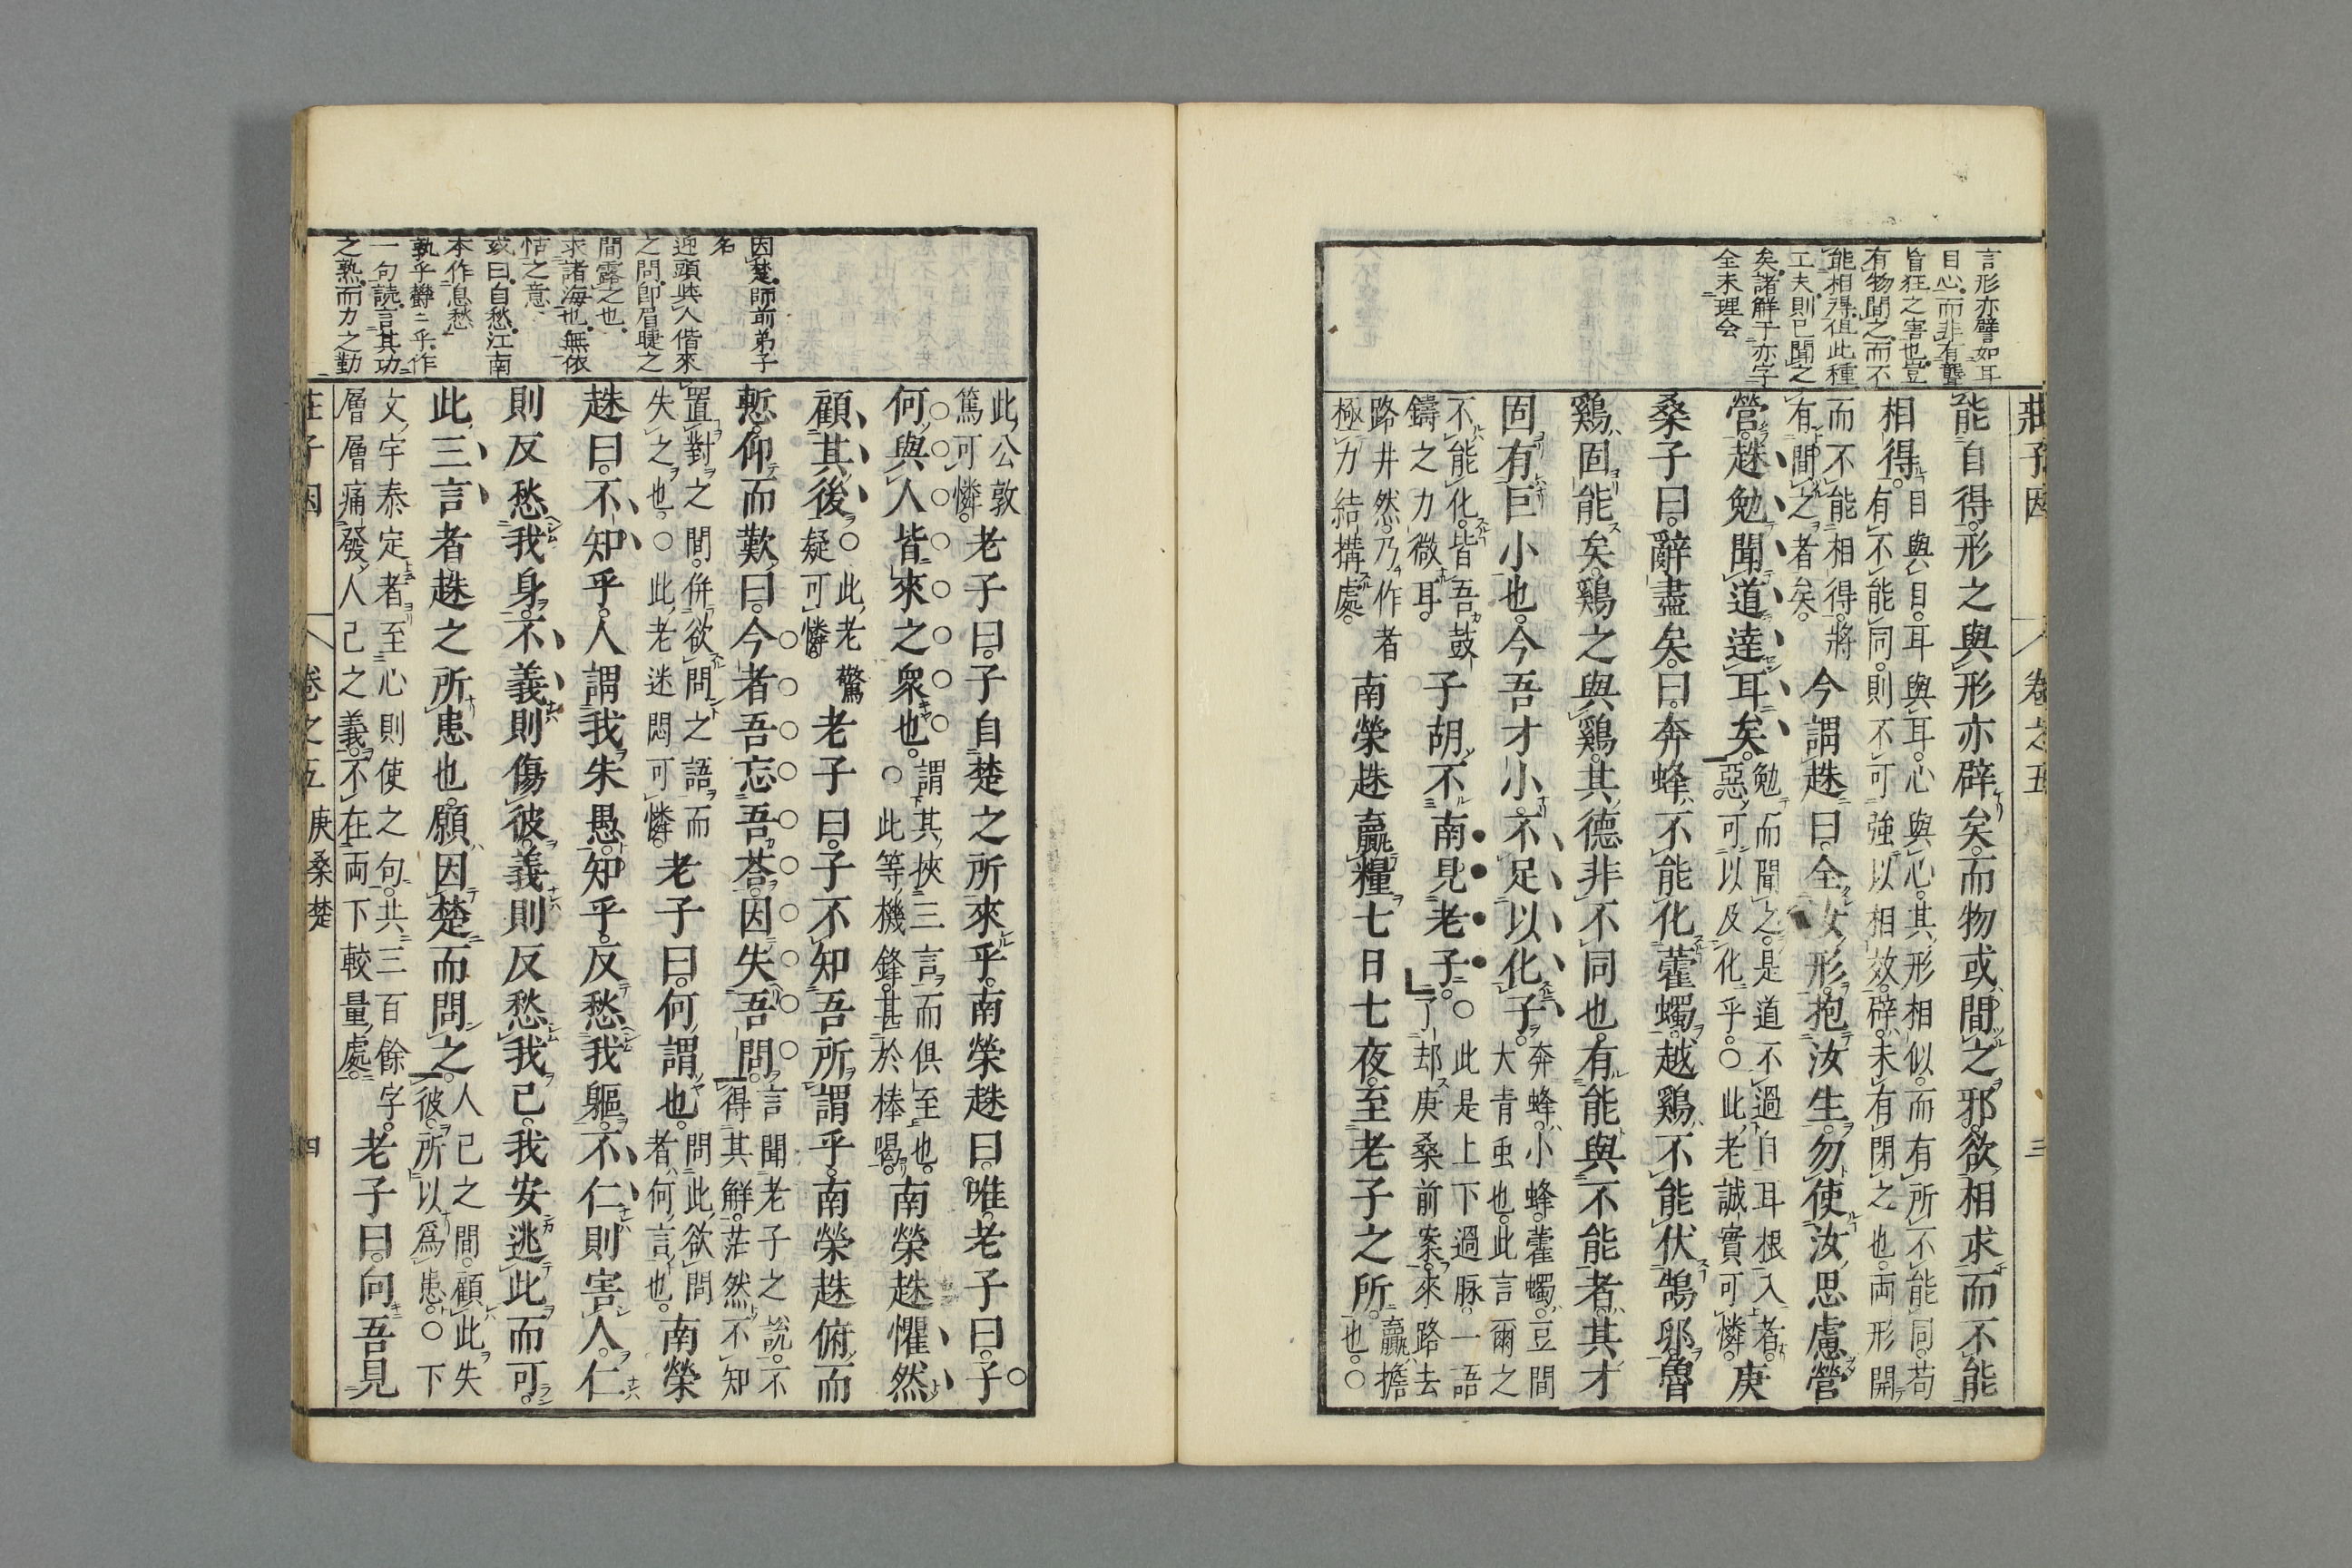 莊子因 卷之五 三
言形亦譬如耳
目心而非有聾
盲狂之害也豈
有物間之而不
能相得但此種
工夫則已聞之
矣諸解于亦字
全未理会
能自得形之與形亦辟矣而物或間之邪欲相求而不能
相得 目與目耳與耳心與心其形相似而有所不能同苟
有不能同則不可強以相效辟未有閉之也両形開
而不能相得將
有間之者矣 今謂趎曰全汝形抱汝生勿使汝思慮營
營趎勉聞道達耳矣 勉而聞之是道不過自耳根入者
惡可以及化乎○此老誠實可憐 庚
桑子曰辭盡矣曰奔蜂不能化藿蠋越鷄不能伏鵠卵魯
鷄固能矣鷄之與鷄其德非不同也有能與不能者其才
固有巨小也今吾才小不足以化子 奔蜂小蜂藿蠋豆間
大青虫也此言爾之
不能化皆吾鼓
鑄之力微耳 子胡不南見老子 ○此是上下過脉一語
了却庚桑前案來路去
路井然乃作者
極力結搆處 南榮趎贏糧七日七夜至老子之所 贏擔
也○
因楚師前弟子
名
迎頭與人偕來
之問即眉睫之
間露之也
求諸海也無依
怙之意
或曰自愁江南
本作息愁
孰乎欝〻乎作
一句読言其功
之熟而力之勤
此公敦
篤可憐 老子曰子自楚之所來乎南榮趎曰唯老子曰子
何與人皆來之衆也 謂其挾三言而俱至也
○此等機鋒甚於棒喝 南榮趎懼然
顧其後 ○此老驚
疑可憐 老子曰子不知吾所謂乎南榮趎俯而
慙仰而歎曰今者吾忘吾荅因失吾問 言聞老子之説不
得其解茫然不知
置對之間併欲問之語而
失之也○此老迷悶可憐 老子曰何謂也 問此欲問
者何言也 南榮
趎曰不知乎人謂我朱愚知乎反愁我軀不仁則害人仁
則反愁我身不義則傷彼義則反愁我己我安逃此而可
此三言者趎之所患也願因楚而問之 人己之間顧此失
彼所以爲患○下
文宇泰定者至心則使之句共三百餘字
層層痛發人己之義不在両下較量處 老子曰向吾見
莊子因 卷之五 庚桑楚 四